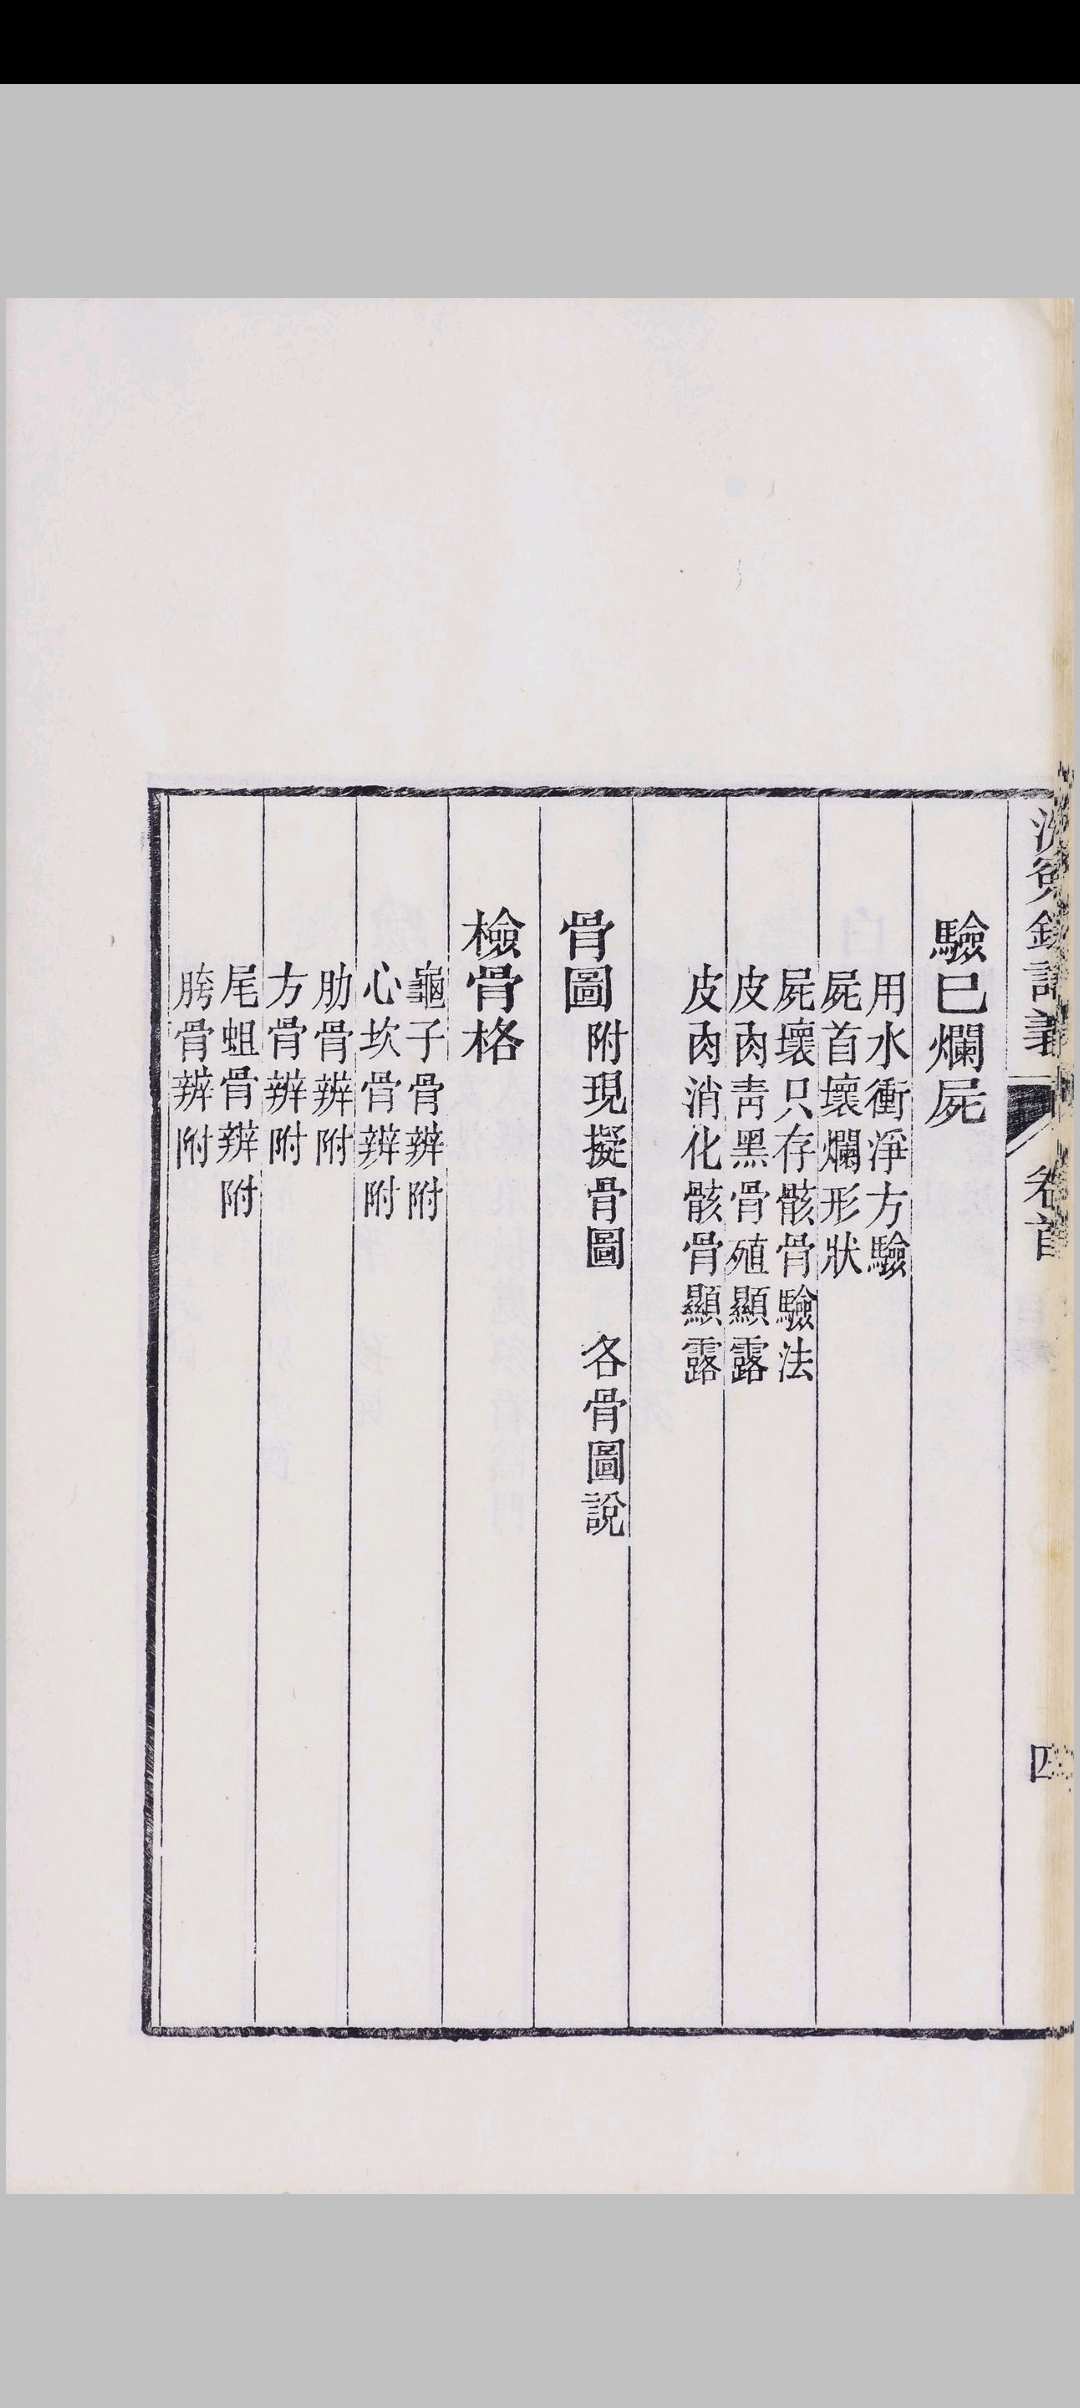 洗冤錄詳義 卷首 四
驗已爛屍
用水衝淨方驗
屍首壞爛形狀
屍壞只存骸骨驗法
皮肉靑黑骨殖顯露
皮肉消化骸骨顯露
骨圖 附現擬骨圖 各骨圖說
檢骨格
龜子骨辨附
心坎骨辨附
肋骨辨附
方骨辨附
尾蛆骨辨附
胯骨辨附